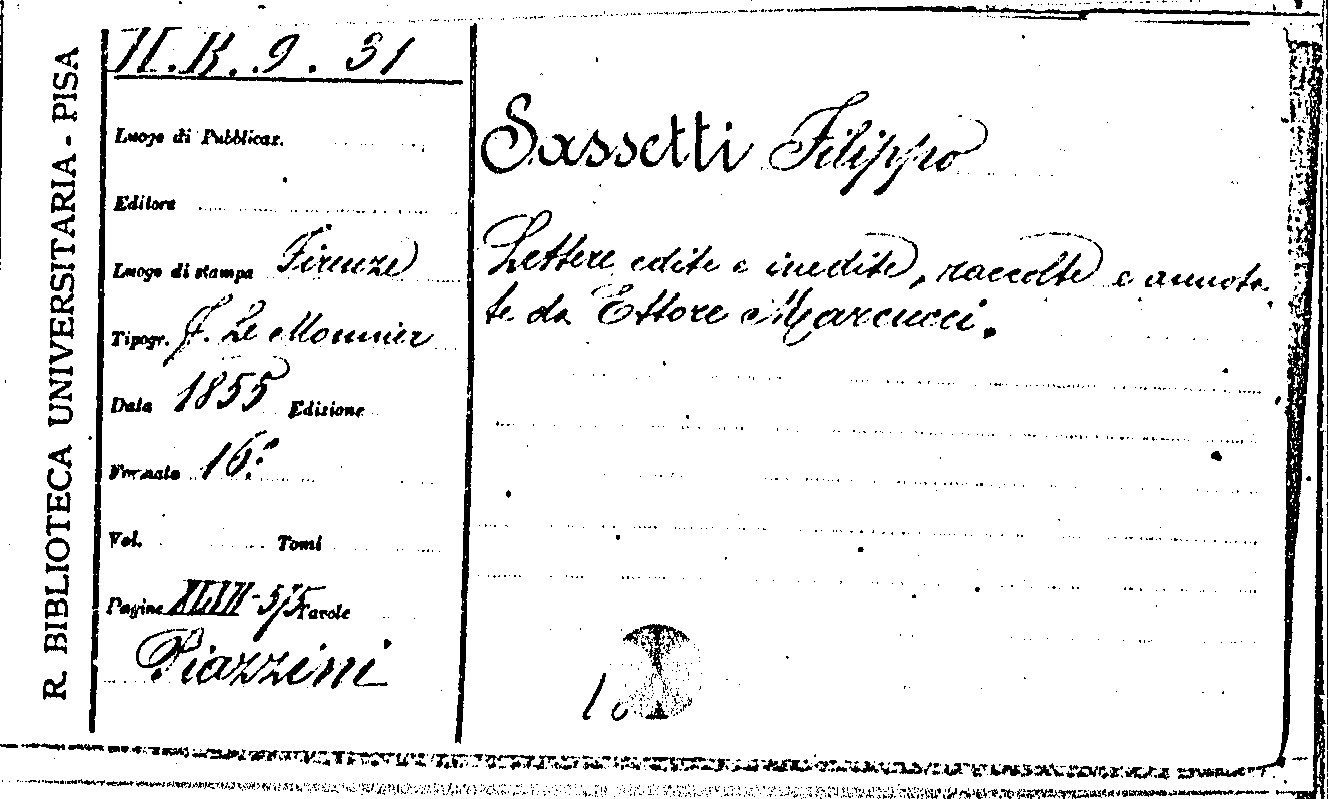 R. BIBLIOTECA UNIVERSITARIA - PISA
H. K. 9. 31
Luogo di Pubblicaz.
Editore
Luogo di stampa Firenze
Tipogr. F. Le Monnier
Data 1855 Edizione
Formato 16.º
Vol. Tomi
Pagine XLIII-575 Tavole
Piazzini
Sassetti Filippo
Lettere edite e inedite, raccolte e annota-
te da Ettore Marcucci.